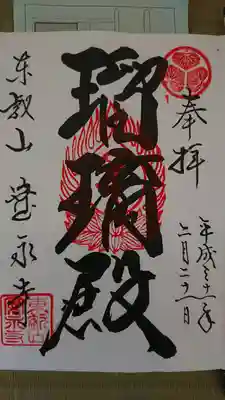 奉拝
平成三十一年
二月二十一日
瑠璃殿
東叡山 寛永寺